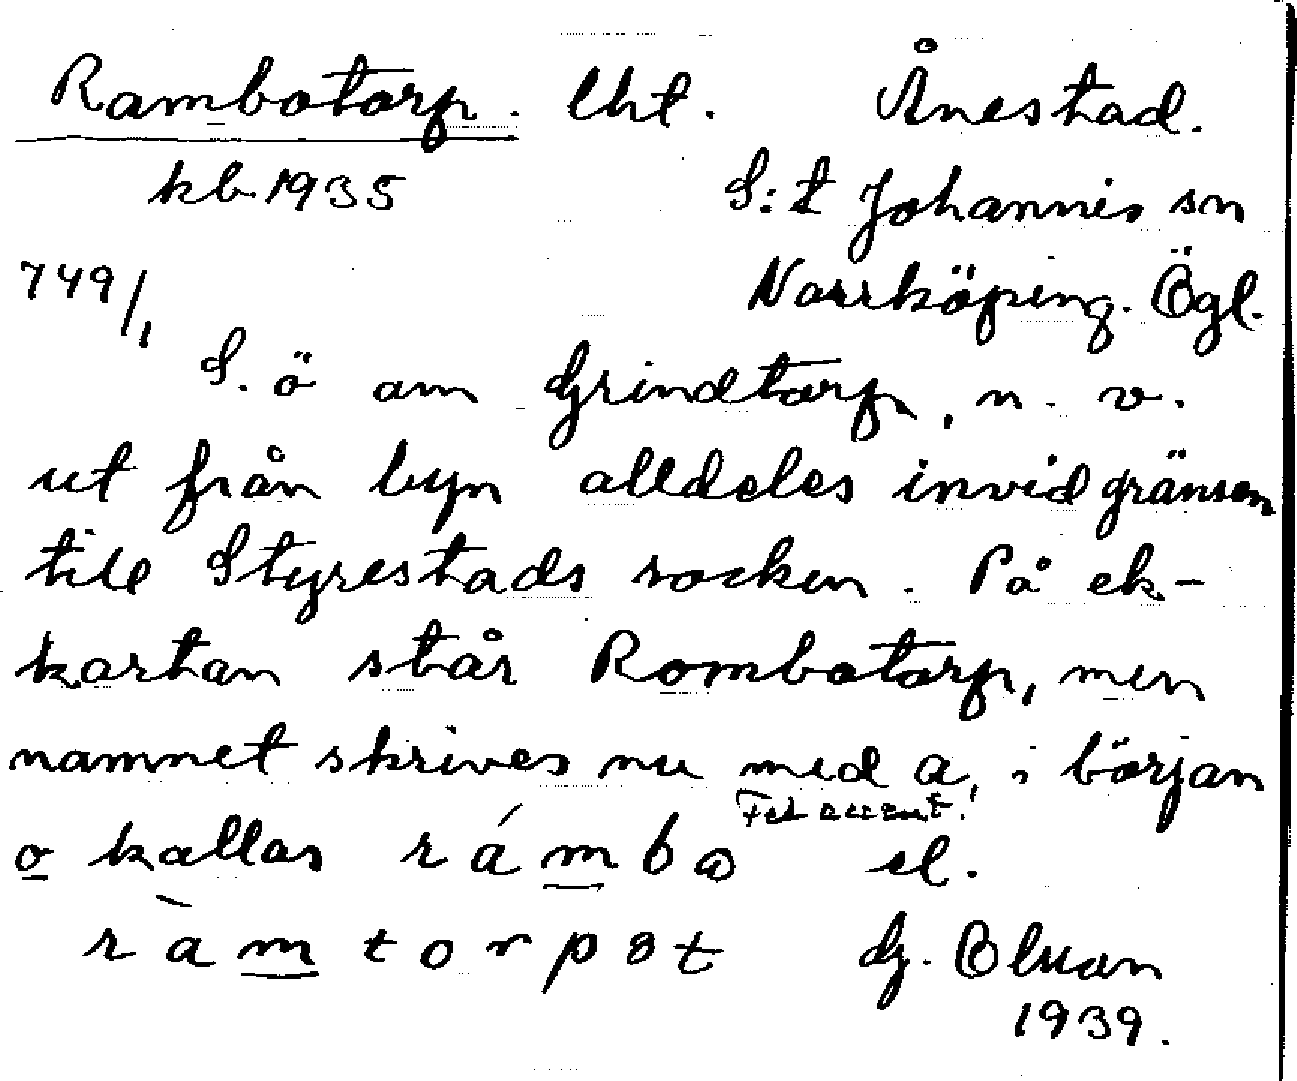 Rambotorp. lht. Ånestad.
kb. 1935 S:t Johannis sn
749/1 Norrköping. Ögl.
S. ö om Grindtorp, n. v.
ut från byn alldeles invid gränsen
till Styrestads socken. På ek-
kartan står Rombotorp, men
namnet skrives nu med a, i början
Fet accent!
o kallas rámbo el.
ràmtorpət G.
1939.